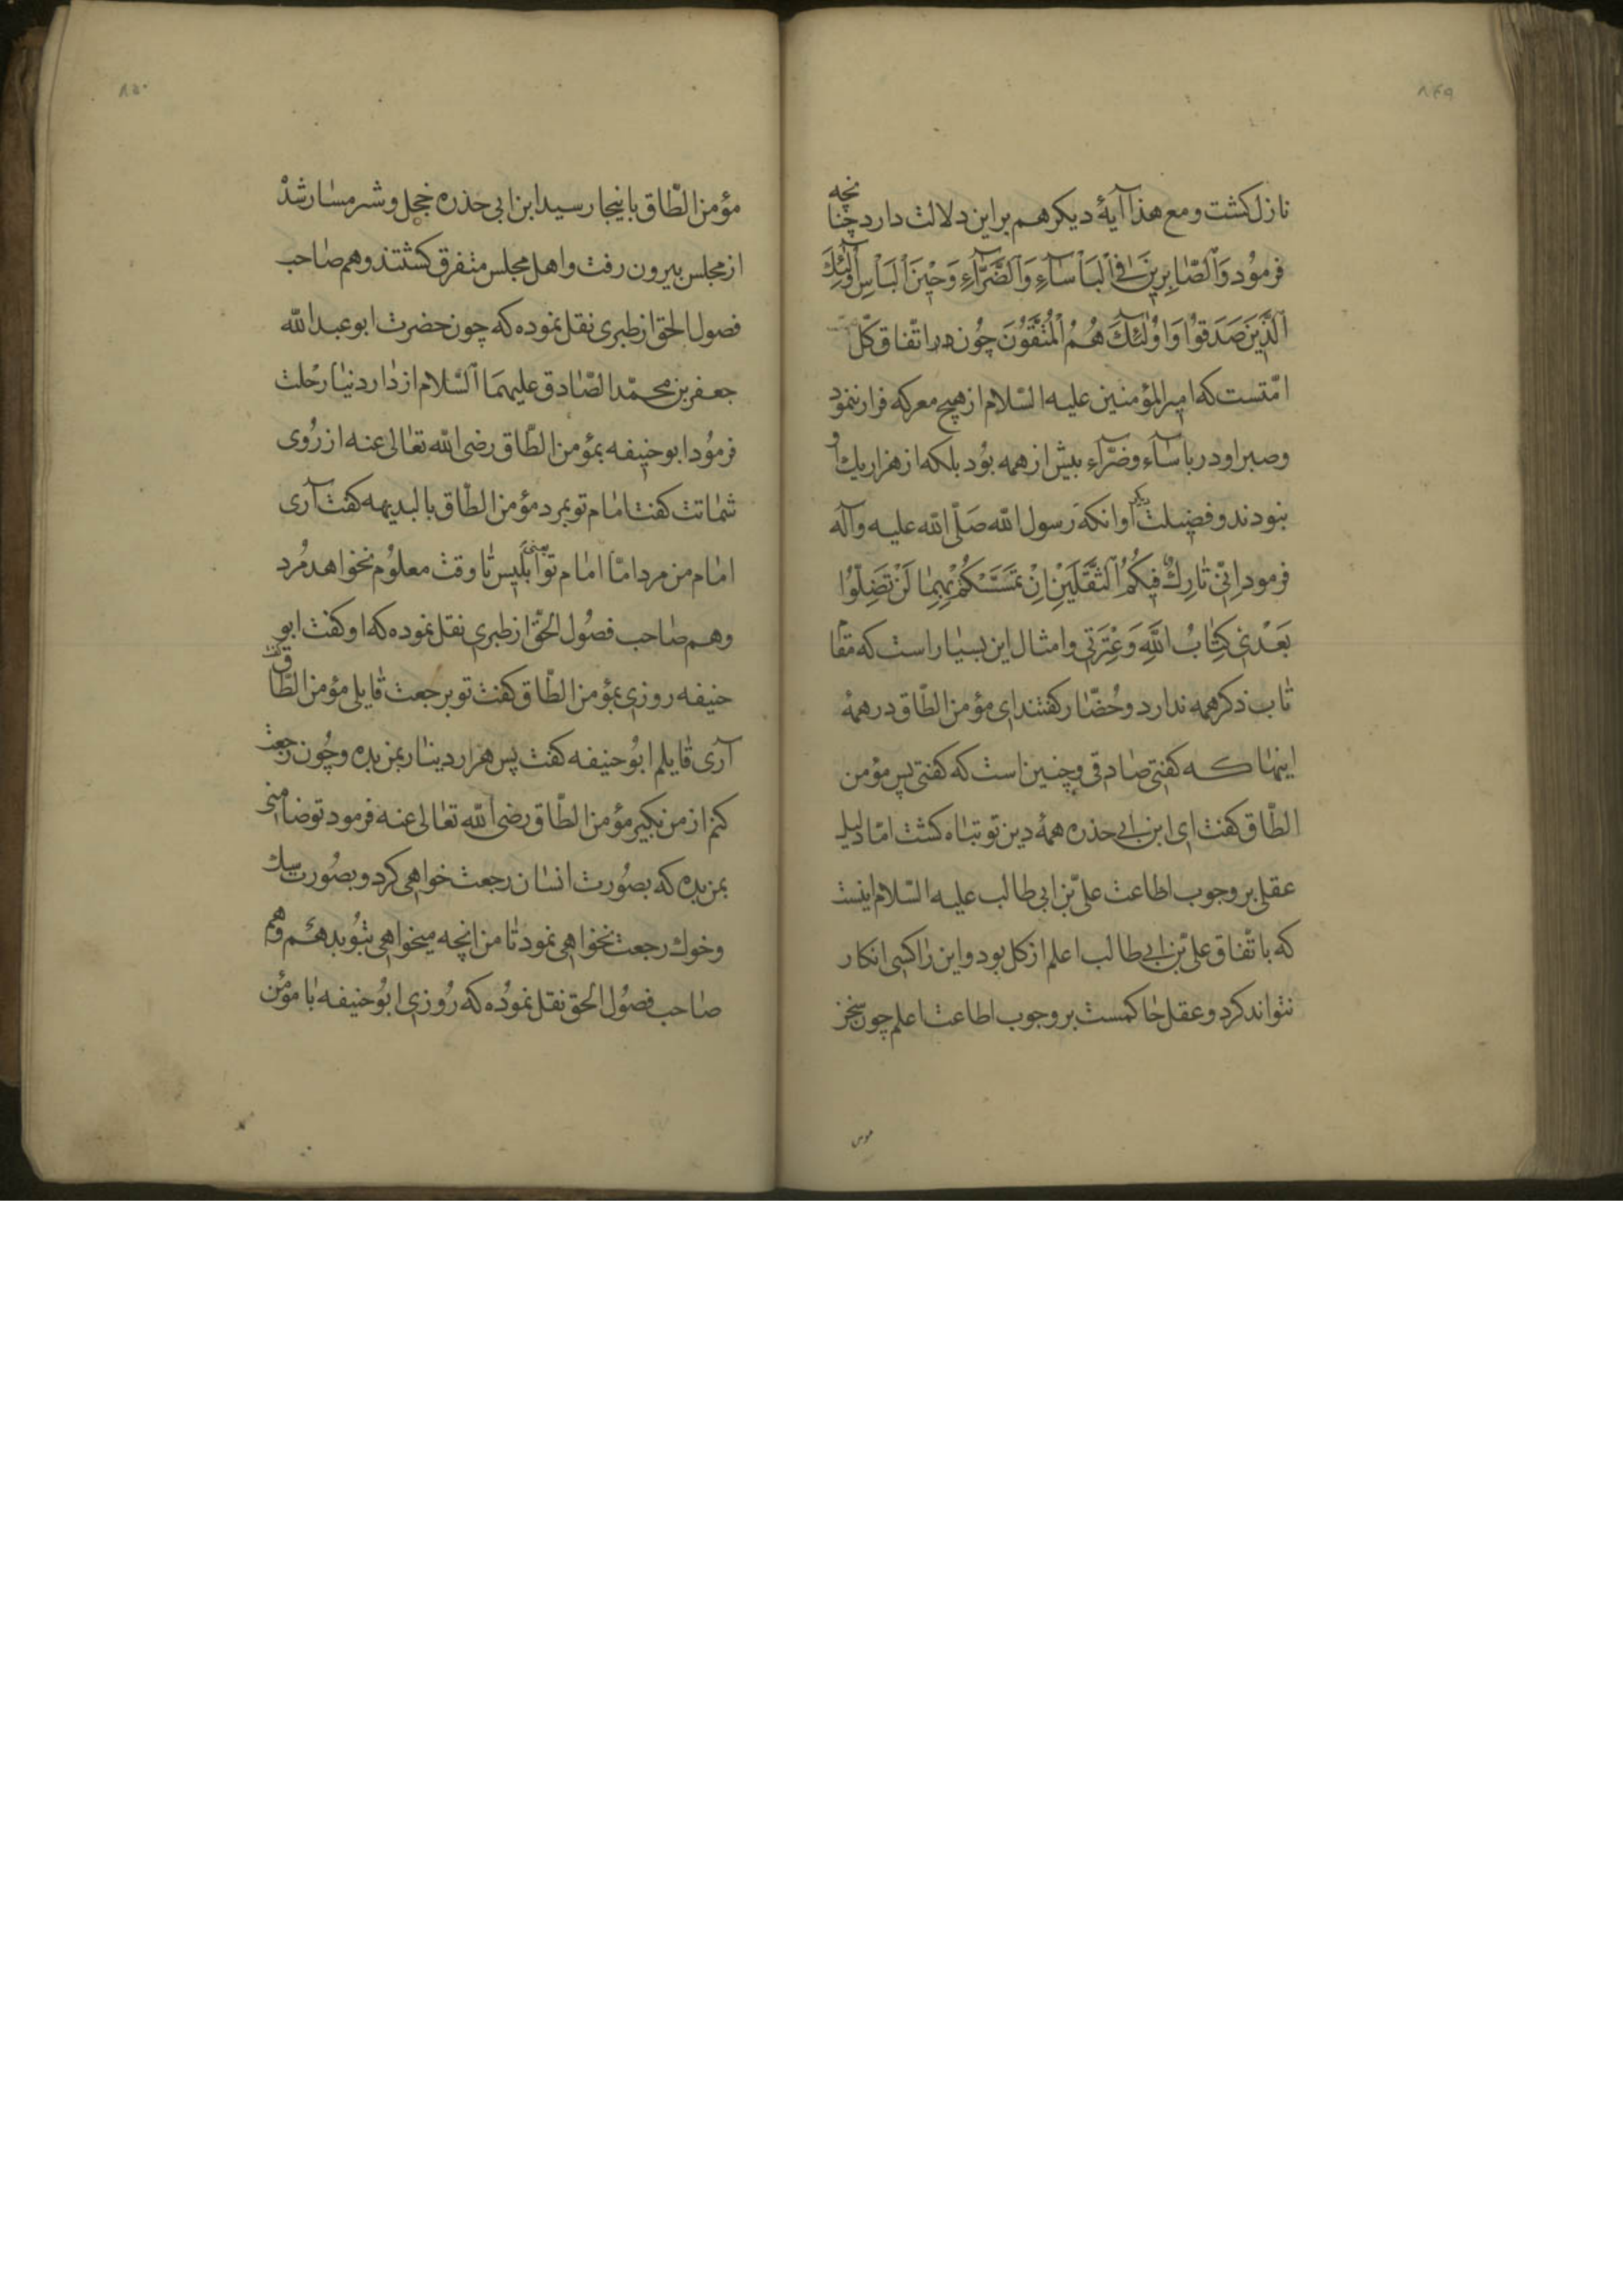 ۸۴۹
نازل کشت و مع هذا آیهٔ دیکر هم بر این دلالت دارد چنانچه
فرمود وَالصّٰابِرینَ فِی الْبَأسٰاءِ وَالضَّرّٰاءِ وَحینَ الْبَأسِ اُولٰئِكَ
الَّذینَ صَدَقُوا وَاُولٰئِكَ هُمُ الْمُتَّقُونَ چون در اتّفاق کلّ
امّتست که امیرالمؤمنین علیه السّلام از هیچ معرکه فرار ننمود
و صبر او در باسآء و ضرّآء بیش از همه بود بلکه از هزار یك او
نبودند و فضیلت دیکر او انکه رسول الله صَلّی الله علیه وآله
فرمود اِنّی تٰارِكٌ فیکُمُ الثَّقَلَیْنِ اِنْ تَمَسَّکْتُمْ بِهِمٰا لَنْ تَضِلّوُا
بَعْدی کِتٰابُ اللّٰهِ وَعِتْرَتی و امثال این بسیار است که مقام
تاب ذکر همه ندارد و حُضّار کفتند ای مؤمن الطّاق در همهٔ
اینها که کفتی صادقی و چنین است که کفتی پس مؤمن
الطّاق کفت ای ابن ابی حذره همهٔ دین تو تباه کشت امّا دلیل
عقلی بر وجوب اطاعت علیّ بن ابی طالب علیه السّلام اینست
که باتّفاق علیّ بن ابی طالب اعلم از کل بود و این را کسی انکار
نتواند کرد و عقل حاکمست بر وجوب اطاعت اعلم چون سخن
مومن
۸۵۰
مؤمن الطّاق باینجا رسید ابن ابی حذره خجل و شرمسار شد
از مجلس بیرون رفت و اهل مجلس متفرق کشتند و هم صاحب
فصول الحق از طبری نقل نموده که چون حضرت ابو عبدالله
جعفر بن محمّد الصّادق علیهما السّلام از دار دنیا رحلت
فرمود ابو حنیفه بمؤمن الطّاق رضی الله تعالی عنه از روی
شماتت کفت امام تو بمرد مؤمن الطّاق بالبدیهه کفت آری
امام من مرد امّا امام تو یعنی ابلیس تا وقت معلوم نخواهد مُرد
و هم صاحب فصُول الحقّ از طبری نقل نموده که او کفت ابو
حنیفه روزی بمؤمن الطّاق کفت تو برجعت قایلی مؤمن الطّاق کفت
آری قایلم ابو حنیفه کفت پس هزار دینار بمن بده و چون رجعت
کنم از من بکیر مؤمن الطّاق رضی الله تعالی عنه فرمود تو ضامنی
بمن بده که بصورت انسان رجعت خواهی کرد و بصورت سك
و خوك رجعت نخواهی نمود تا من انچه میخواهی بتو بدهم و هم
صاحب فصُول الحق نقل نموده که روزی ابو حنیفه با مؤمن